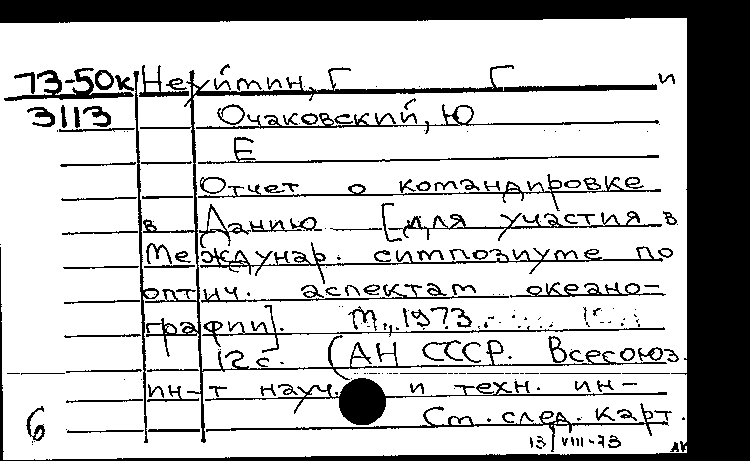 73-50к Неуймин, Г Г и
3113 Очаковский, Ю
Е
Отчет о командировке
в Данию [для участия в
Междунар. симпозиуме по
оптич. аспектам океано-
графии]. М., 1973.
12 с. (АН СССР. Всесоюз.
ин-т науч. и техн. ин-
6 См. след. карт.
13/VIII-73